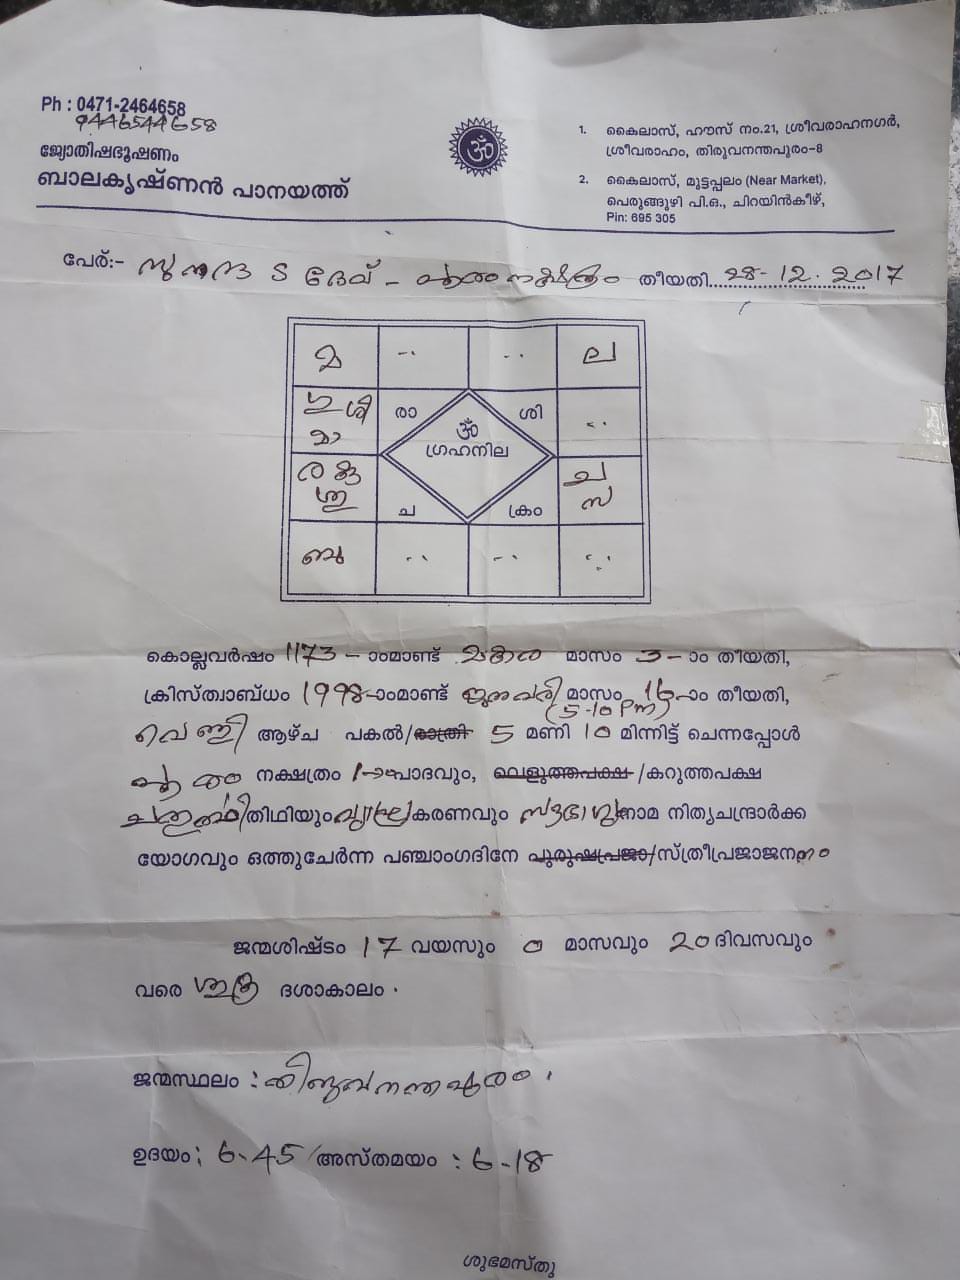 Ph : 0471-2464658
9446544658
ജ്യോതിഷഭൂഷണം
ബാലകൃഷ്ണൻ പാനയത്ത്
ॐ
1. കൈലാസ്, ഹൗസ് നം.21, ശ്രീവരാഹനഗർ,
ശ്രീവരാഹം, തിരുവനന്തപുരം-8
2. കൈലാസ്, മുട്ടപ്പലം (Near Market),
പെരുങ്ങുഴി പി.ഒ., ചിറയിൻകീഴ്,
Pin: 695 305
പേര്:- S ദേവ് - പൂരം നക്ഷത്രം തീയതി 28-12-2017
മ ല
ശി
മാ
രാ ശി
ॐ
ഗ്രഹനില
ര കു
ശു
ച
സ
ച ക്രം
ബു
കൊല്ലവർഷം 1173 - ാംമാണ്ട് മകരം മാസം 3 - ാം തീയതി,
ക്രിസ്ത്വാബ്ധം 1998-ാംമാണ്ട് ജനുവരി മാസം 16-ാം തീയതി,
(5-10 Pm)
വെള്ളി ആഴ്ച പകൽ/രാത്രി 5 മണി 10 മിന്നിട്ട് ചെന്നപ്പോൾ
പൂരം നക്ഷത്രം 1-ാംപാദവും, വെളുത്തപക്ഷ/കറുത്തപക്ഷ
ചതുർത്ഥിതിഥിയും കരണവും നാമ നിത്യചന്ദ്രാർക്ക
യോഗവും ഒത്തുചേർന്ന പഞ്ചാംഗദിനേ പുരുഷപ്രജാ/സ്ത്രീപ്രജാജനനം
ജന്മശിഷ്ടം 17 വയസും 0 മാസവും 20 ദിവസവും
വരെ ശുക്ര ദശാകാലം .
ജന്മസ്ഥലം : തിരുവനന്തപുരം .
ഉദയം : 6-45 / അസ്തമയം : 6-18
ശുഭമസ്തു